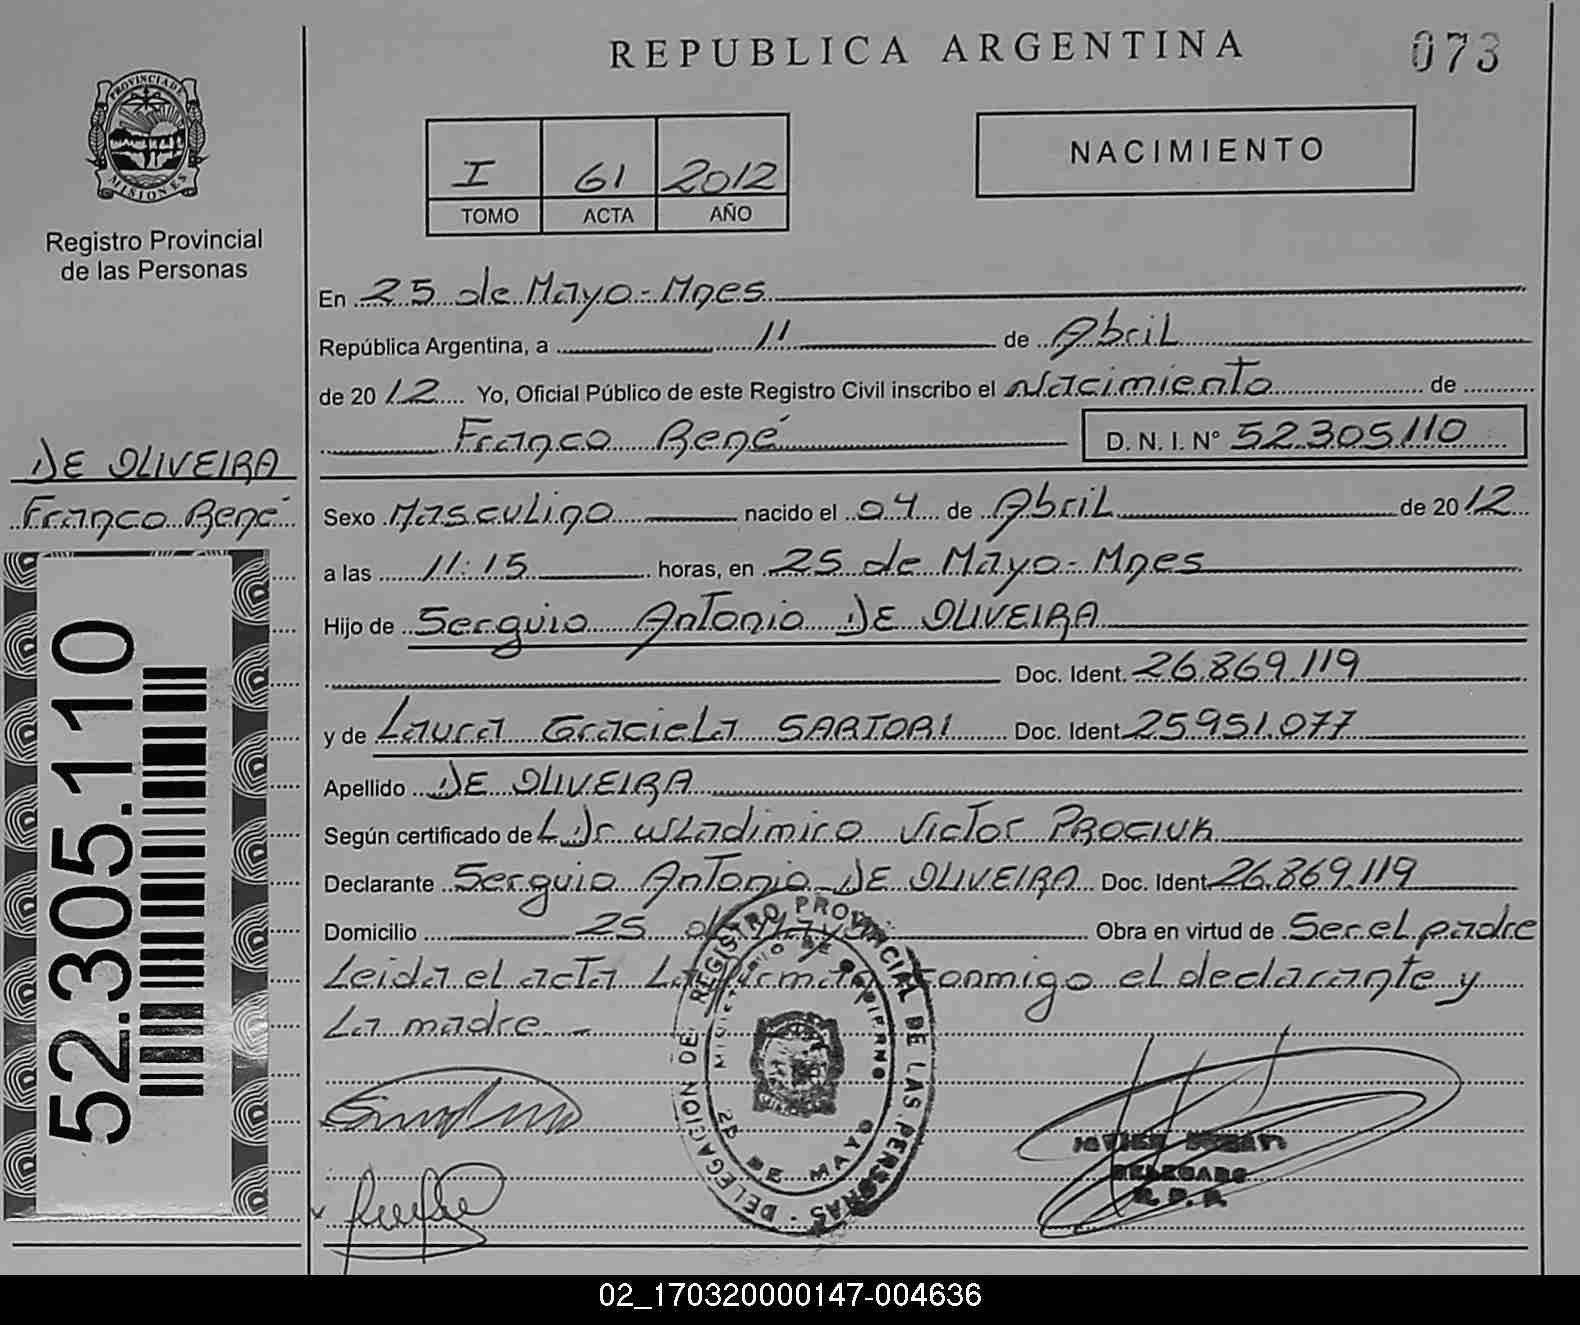 REPUBLICA ARGENTINA
073
PROVINCIA DE MISIONES
Registro Provincial
de las Personas
I 61 2012
TOMO ACTA AÑO
NACIMIENTO
En 25 de Mayo - Mnes
República Argentina, a 11 de Abril
de 2012 Yo, Oficial Público de este Registro Civil inscribo el Nacimiento de
Franco René D. N. I. N° 52.305.110
DE OLIVEIRA
Franco René
Sexo Masculino nacido el 04 de Abril de 2012
a las 11:15 horas, en 25 de Mayo - Mnes
Hijo de Serguio Antonio DE OLIVEIRA
Doc. Ident. 26.869.119
y de Laura Graciela SARTORI Doc. Ident 25951.077
Apellido DE OLIVEIRA
Según certificado de L Dr Wladimiro Victor PROCIUK
Declarante Serguio Antonio DE OLIVEIRA Doc. Ident 26.869.119
Domicilio 25 de Mayo Obra en virtud de Ser el padre
Leida el acta La firman conmigo el declarante y
La madre -
52.305.110
REGISTRO PROVINCIAL DE LAS PERSONAS - DELEGACION DE
MINISTERIO DE GOBIERNO
25 DE MAYO
DELEGADO
R. P. P.
02_170320000147-004636